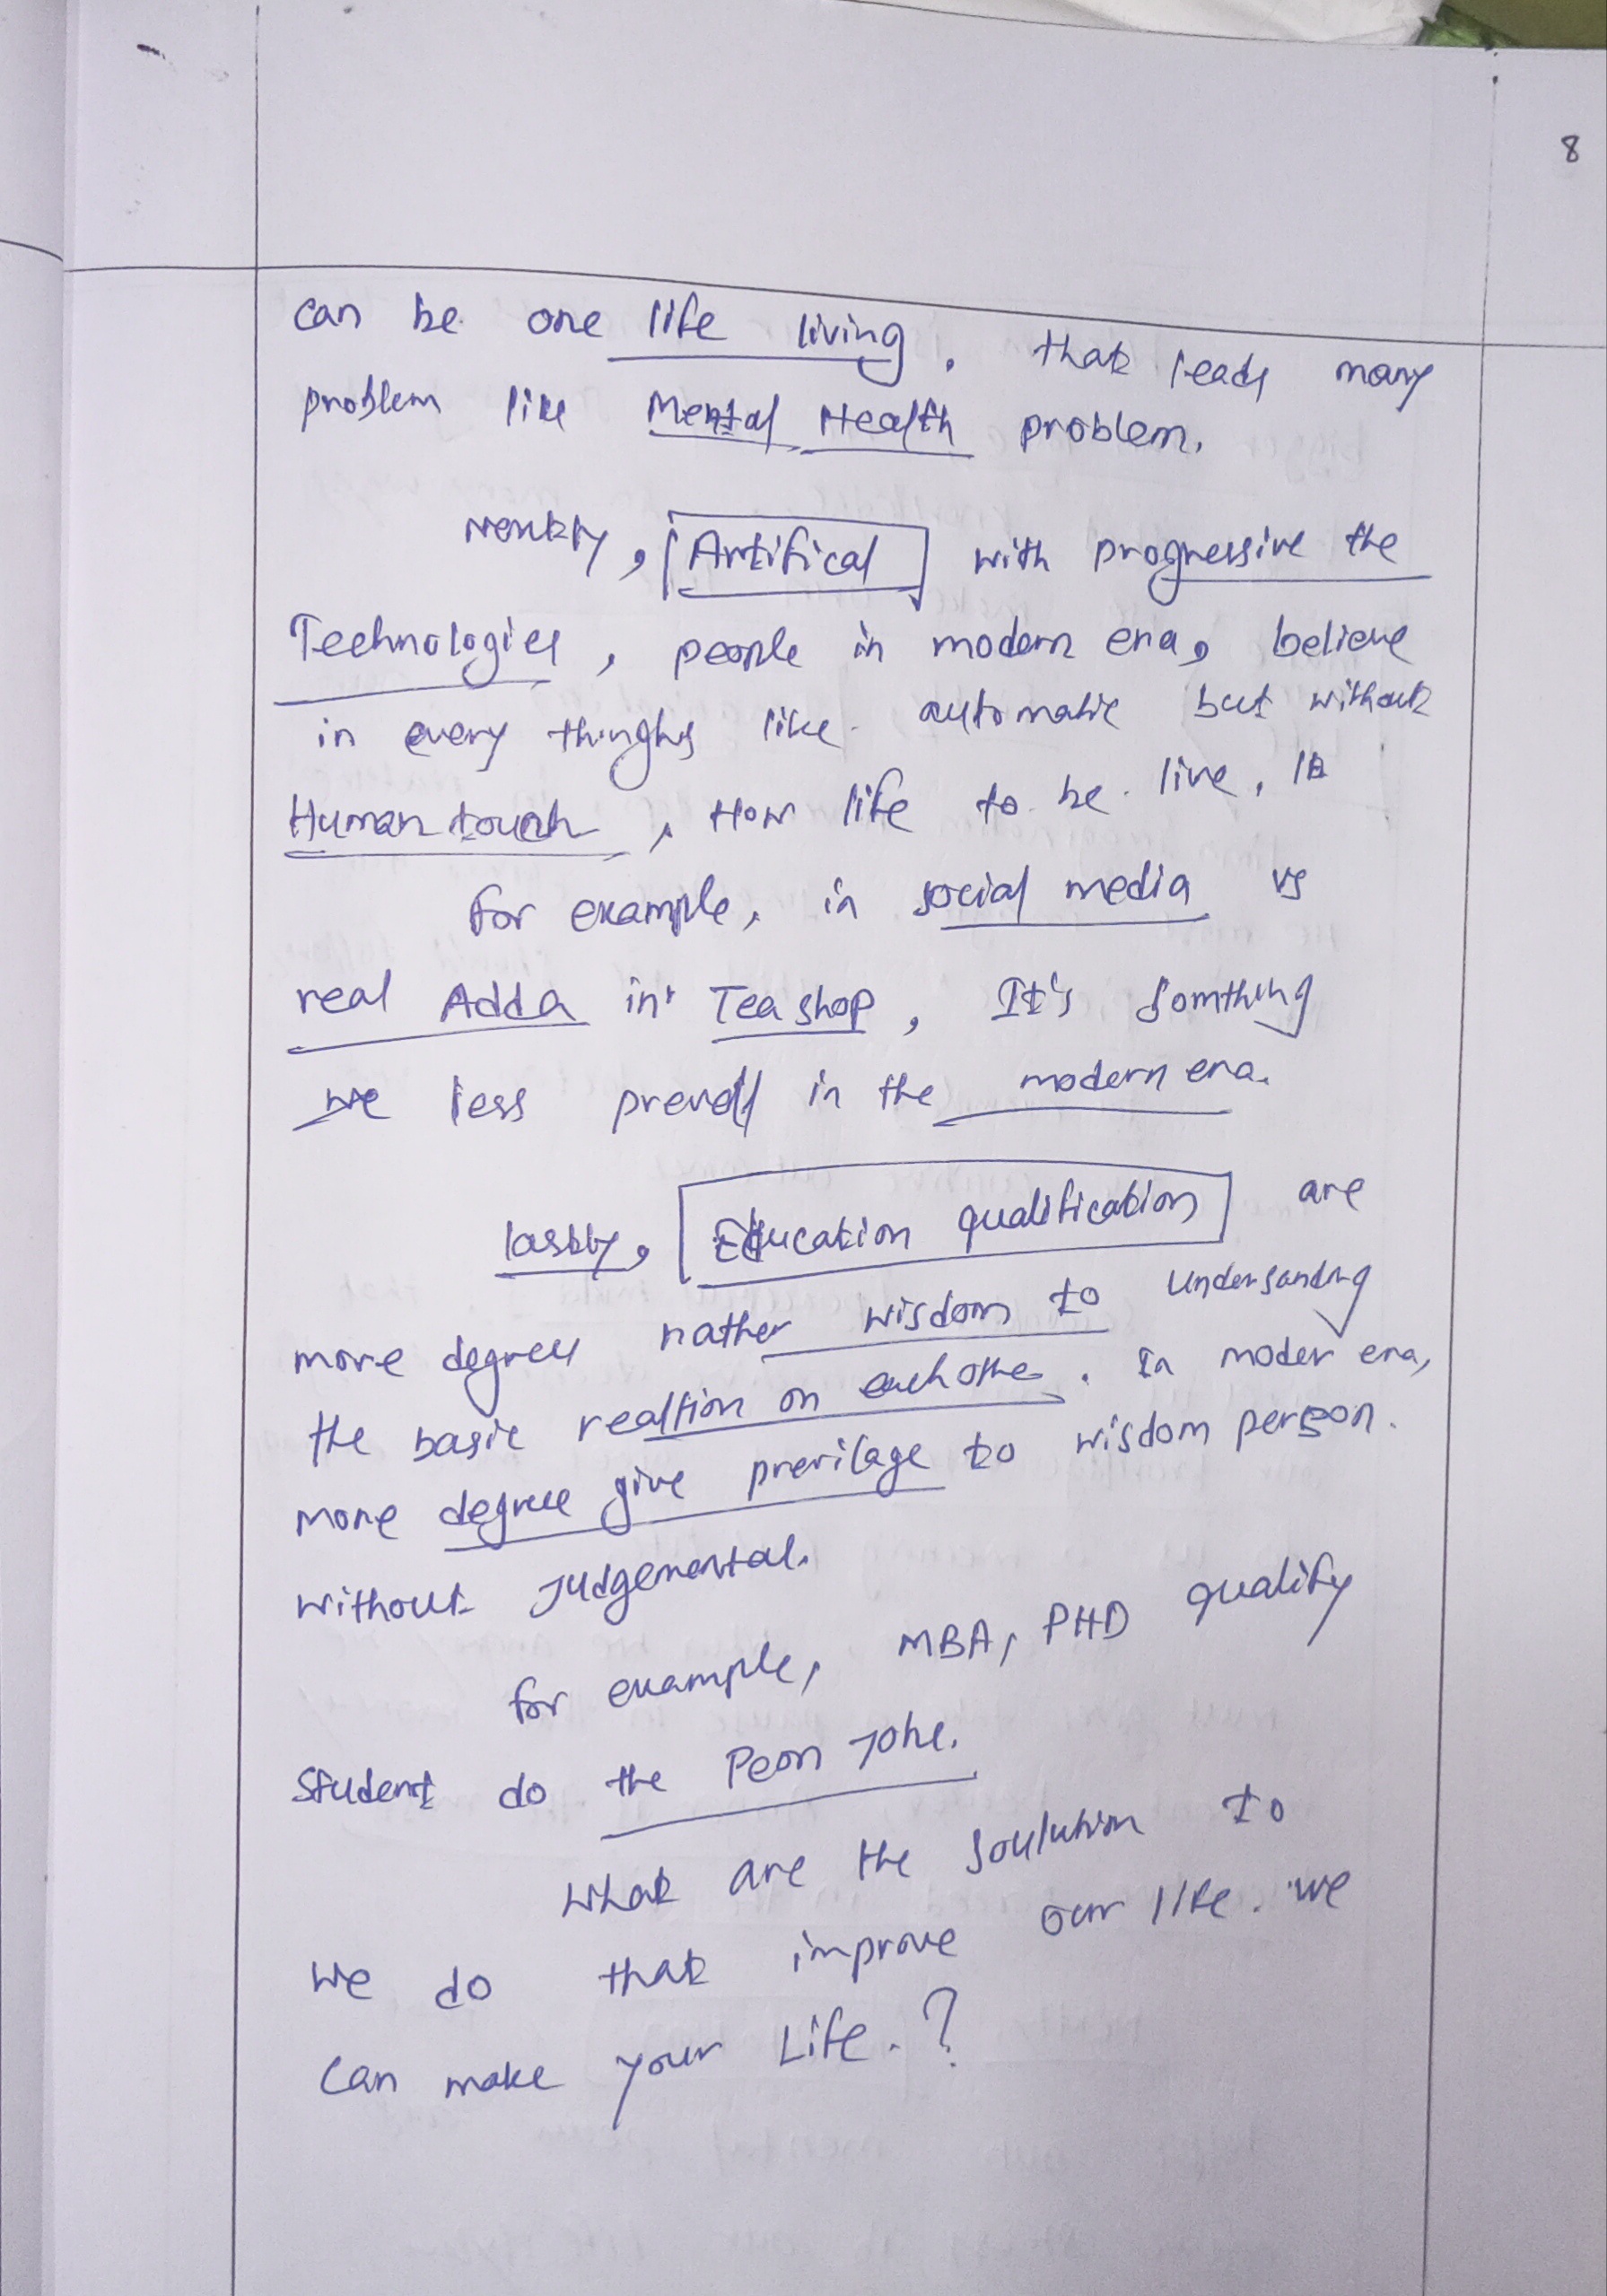 8
can be one life living. that leads many
problem like Mental Health problem.
Nextly, Artifical with progressive the
Technologies, people in modern era, believe
in every thinghs like automatic but without
Human touch, How life to be live,
for example, in social media vs
real Adda in Tea shop, It's somthing
we less prevail in the modern era.
lastly, Education qualification are
more degrees rather wisdom to Undersanding
the basic realtion on each othe. In moder era,
more degree give previlage to wisdom person.
without Judgemental.
for example, MBA, PHD qualify
Student do the Peon Johe.
What are the soulution to
We do that improve our life. We
Can make your Life.?